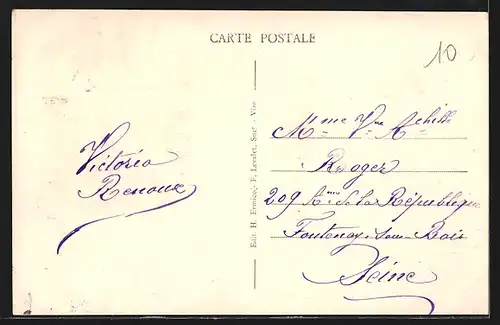 CARTE POSTALE
10
Victoria
Renoux
Edit. H. Ermice, F. Levalet, Sucr - Vire
Mme Vve Achille
Roger
209 de la République
Fontenay-sous-Bois
Seine